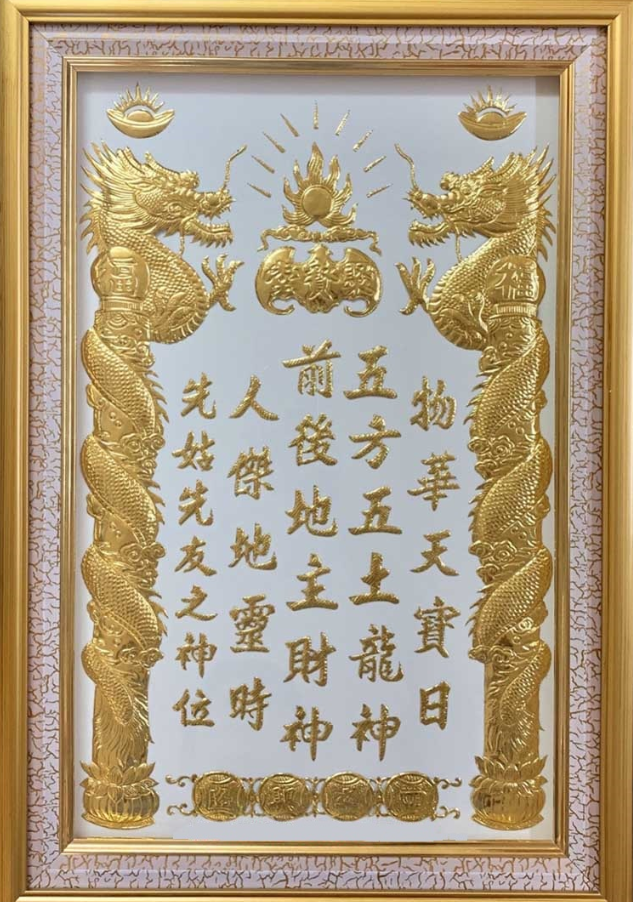 福
福
物華天寶日
五方五土龍神
前後地主財神
人傑地靈時
先姑先友之神位